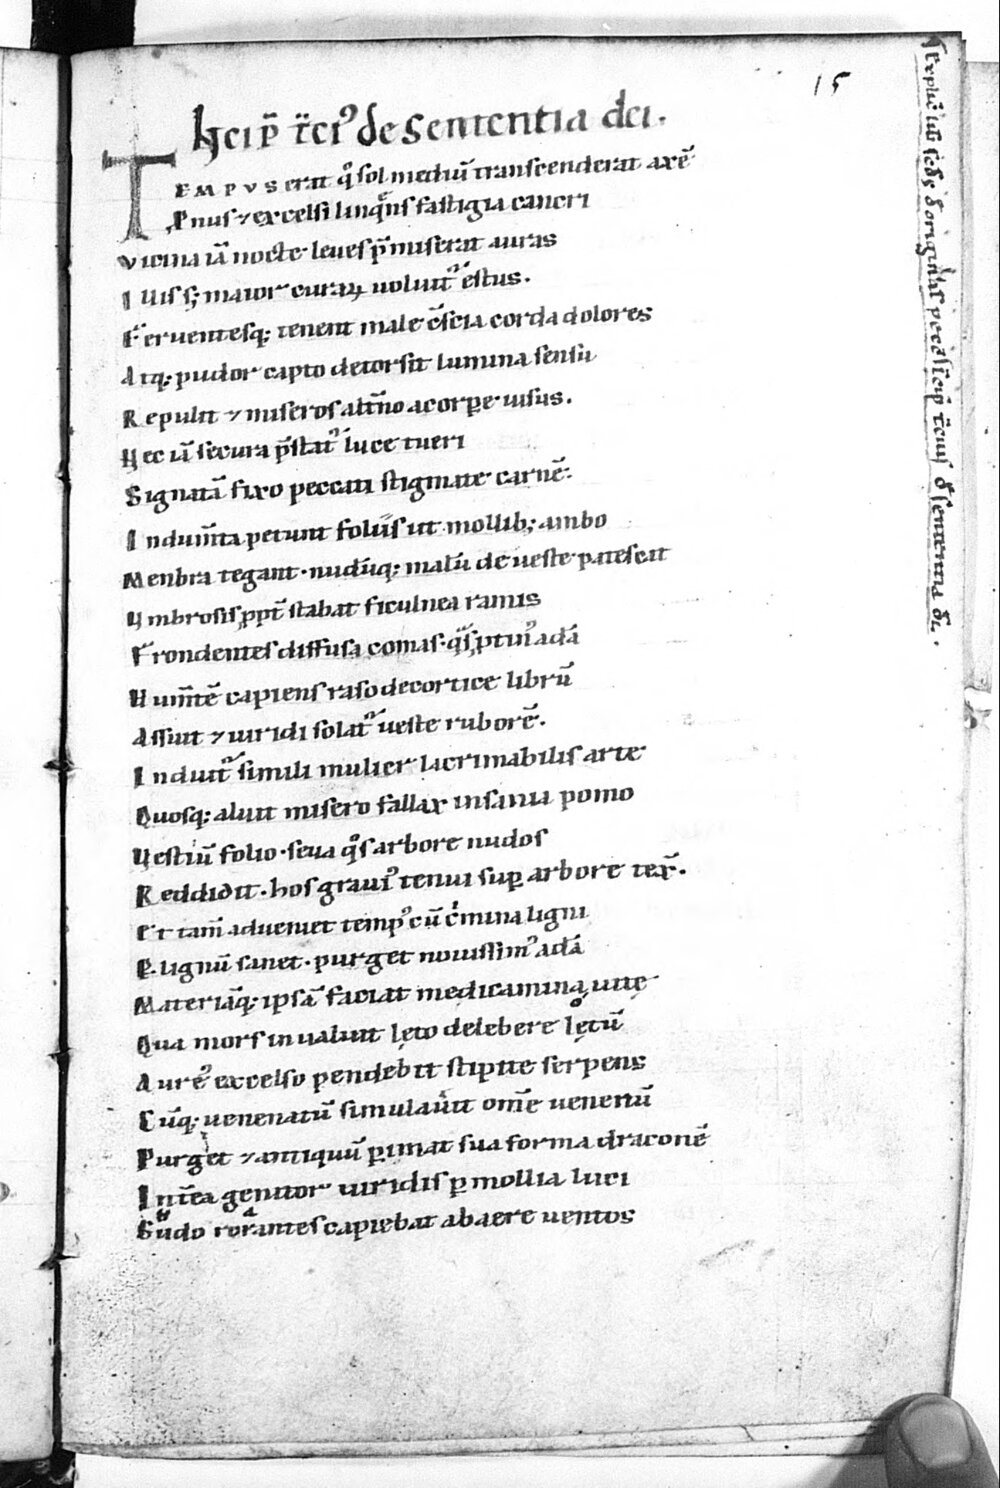 15
Incip̄ t̄ci⁹ de sententia dei.
TEMPVS erat q͛ sol mediū transcenderat axē
Pnus ⁊ excelsi linq͛ns fastigia cancri
Vicina iā nocte leues p̄miserat auras
Illis s; maior curaꝝ uoluit᷑ ęstus.
Feruentesq; tenent male c̄scia corda dolores
Atq; pudor capto detorsit lumina sensu
Repulit ⁊ miseros alt̄no a corꝑe uisus.
Nec iā secura p̄stat᷑ luce tueri
Signatā fixo peccati stigmate carnē.
Indum̄ta petunt foliis ut mollib; ambo
Menbra tegant. nudūq; malū de ueste patescit
Vmbrosis ꝓpt̄ stabat ficulnea ramis
Frondentes diffusa comas. q͛s ꝓtin⁹ adā
Hum̄tē capiens raso de cortice librū
Assuit ⁊ uiridi solat᷑ ueste ruborē.
Induit᷑ simili mulier lacrimabilis arte
Quosq; aluit misero fallax insania pomo
Vestiū folio. seua q͛s arbore nudos
Reddidit. hos graui᷑ tenui suꝑ arbore tex̄.
Et tam̄ adueniet temp⁹ cū c͛mina ligni
ꝑ lignū sanet. purget nouissim⁹ adā
Materiāq; ipsā faciat medicamina uitę
Qua mors inualuit lęto delebere lętū
Aure⁹ excelso pendebit stipite serpens
Cūq; uenenatū simulau͛it om̄e uenenū
Purget ⁊ antiquū ꝑimat sua forma draconē
Int̄ea genitor uiridis ꝑ mollia luci
Sudo rorantes capiebat ab aere uentos